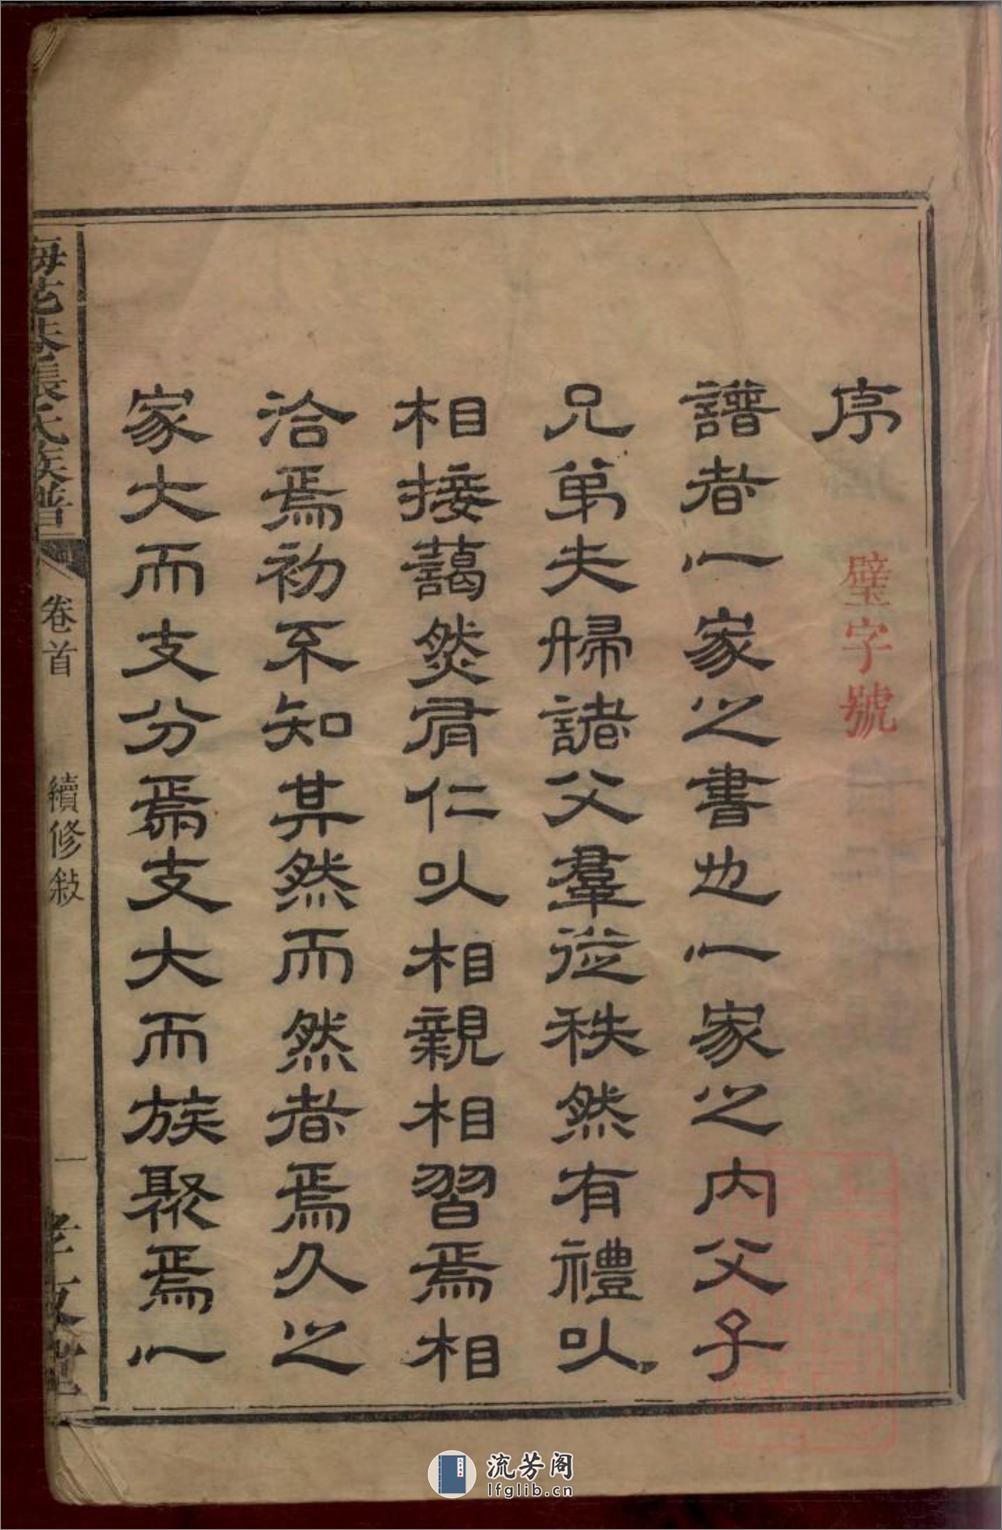 序
璧字號
譜者一家之書也一家之內父子
兄弟夫婦諸父羣從秩然有禮以
相接藹然有仁以相親相習焉相
洽焉初不知其然而然者焉久之
家大而支分焉支大而族聚焉一
梅花巷張氏族譜
卷首
續修敍
一
孝友堂
流芳阁
lfglib.cn